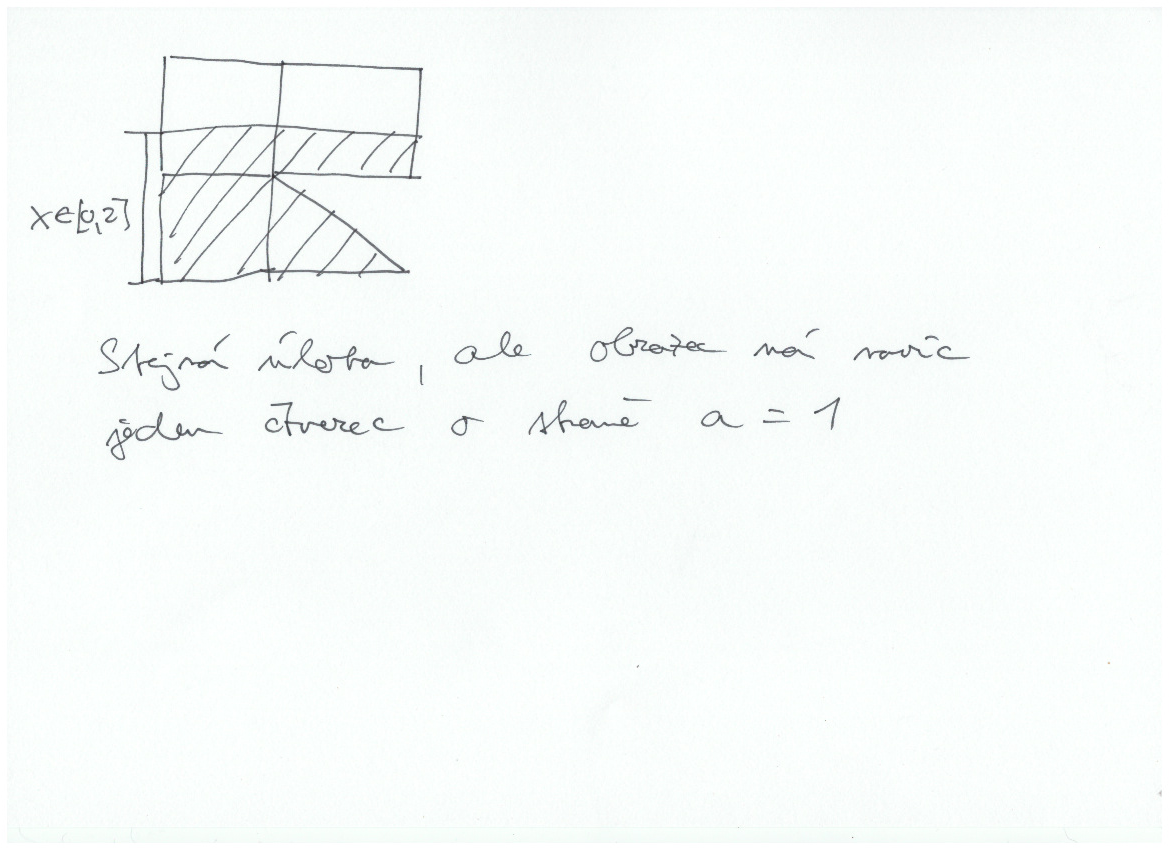 x ∈ [0,2]
Stejná úloha, ale obrazec má navíc
jeden čtverec o straně a = 1